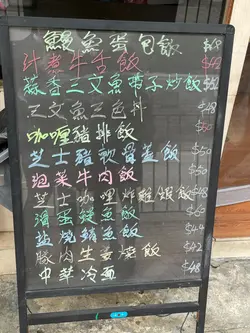 鰻魚蛋包飯 $68
汁煮牛舌飯
蒜香三文魚帶子炒飯 $52
三文魚三色丼 $48
咖喱豬排飯
芝士豬軟骨蓋飯 $50
泡菜牛肉飯
芝士咖哩炸雞焗飯 $48
滑蛋鰻魚飯 $60
鹽燒鯖魚飯 $44
豚肉生姜燒飯 $42
中華冷麵 $48